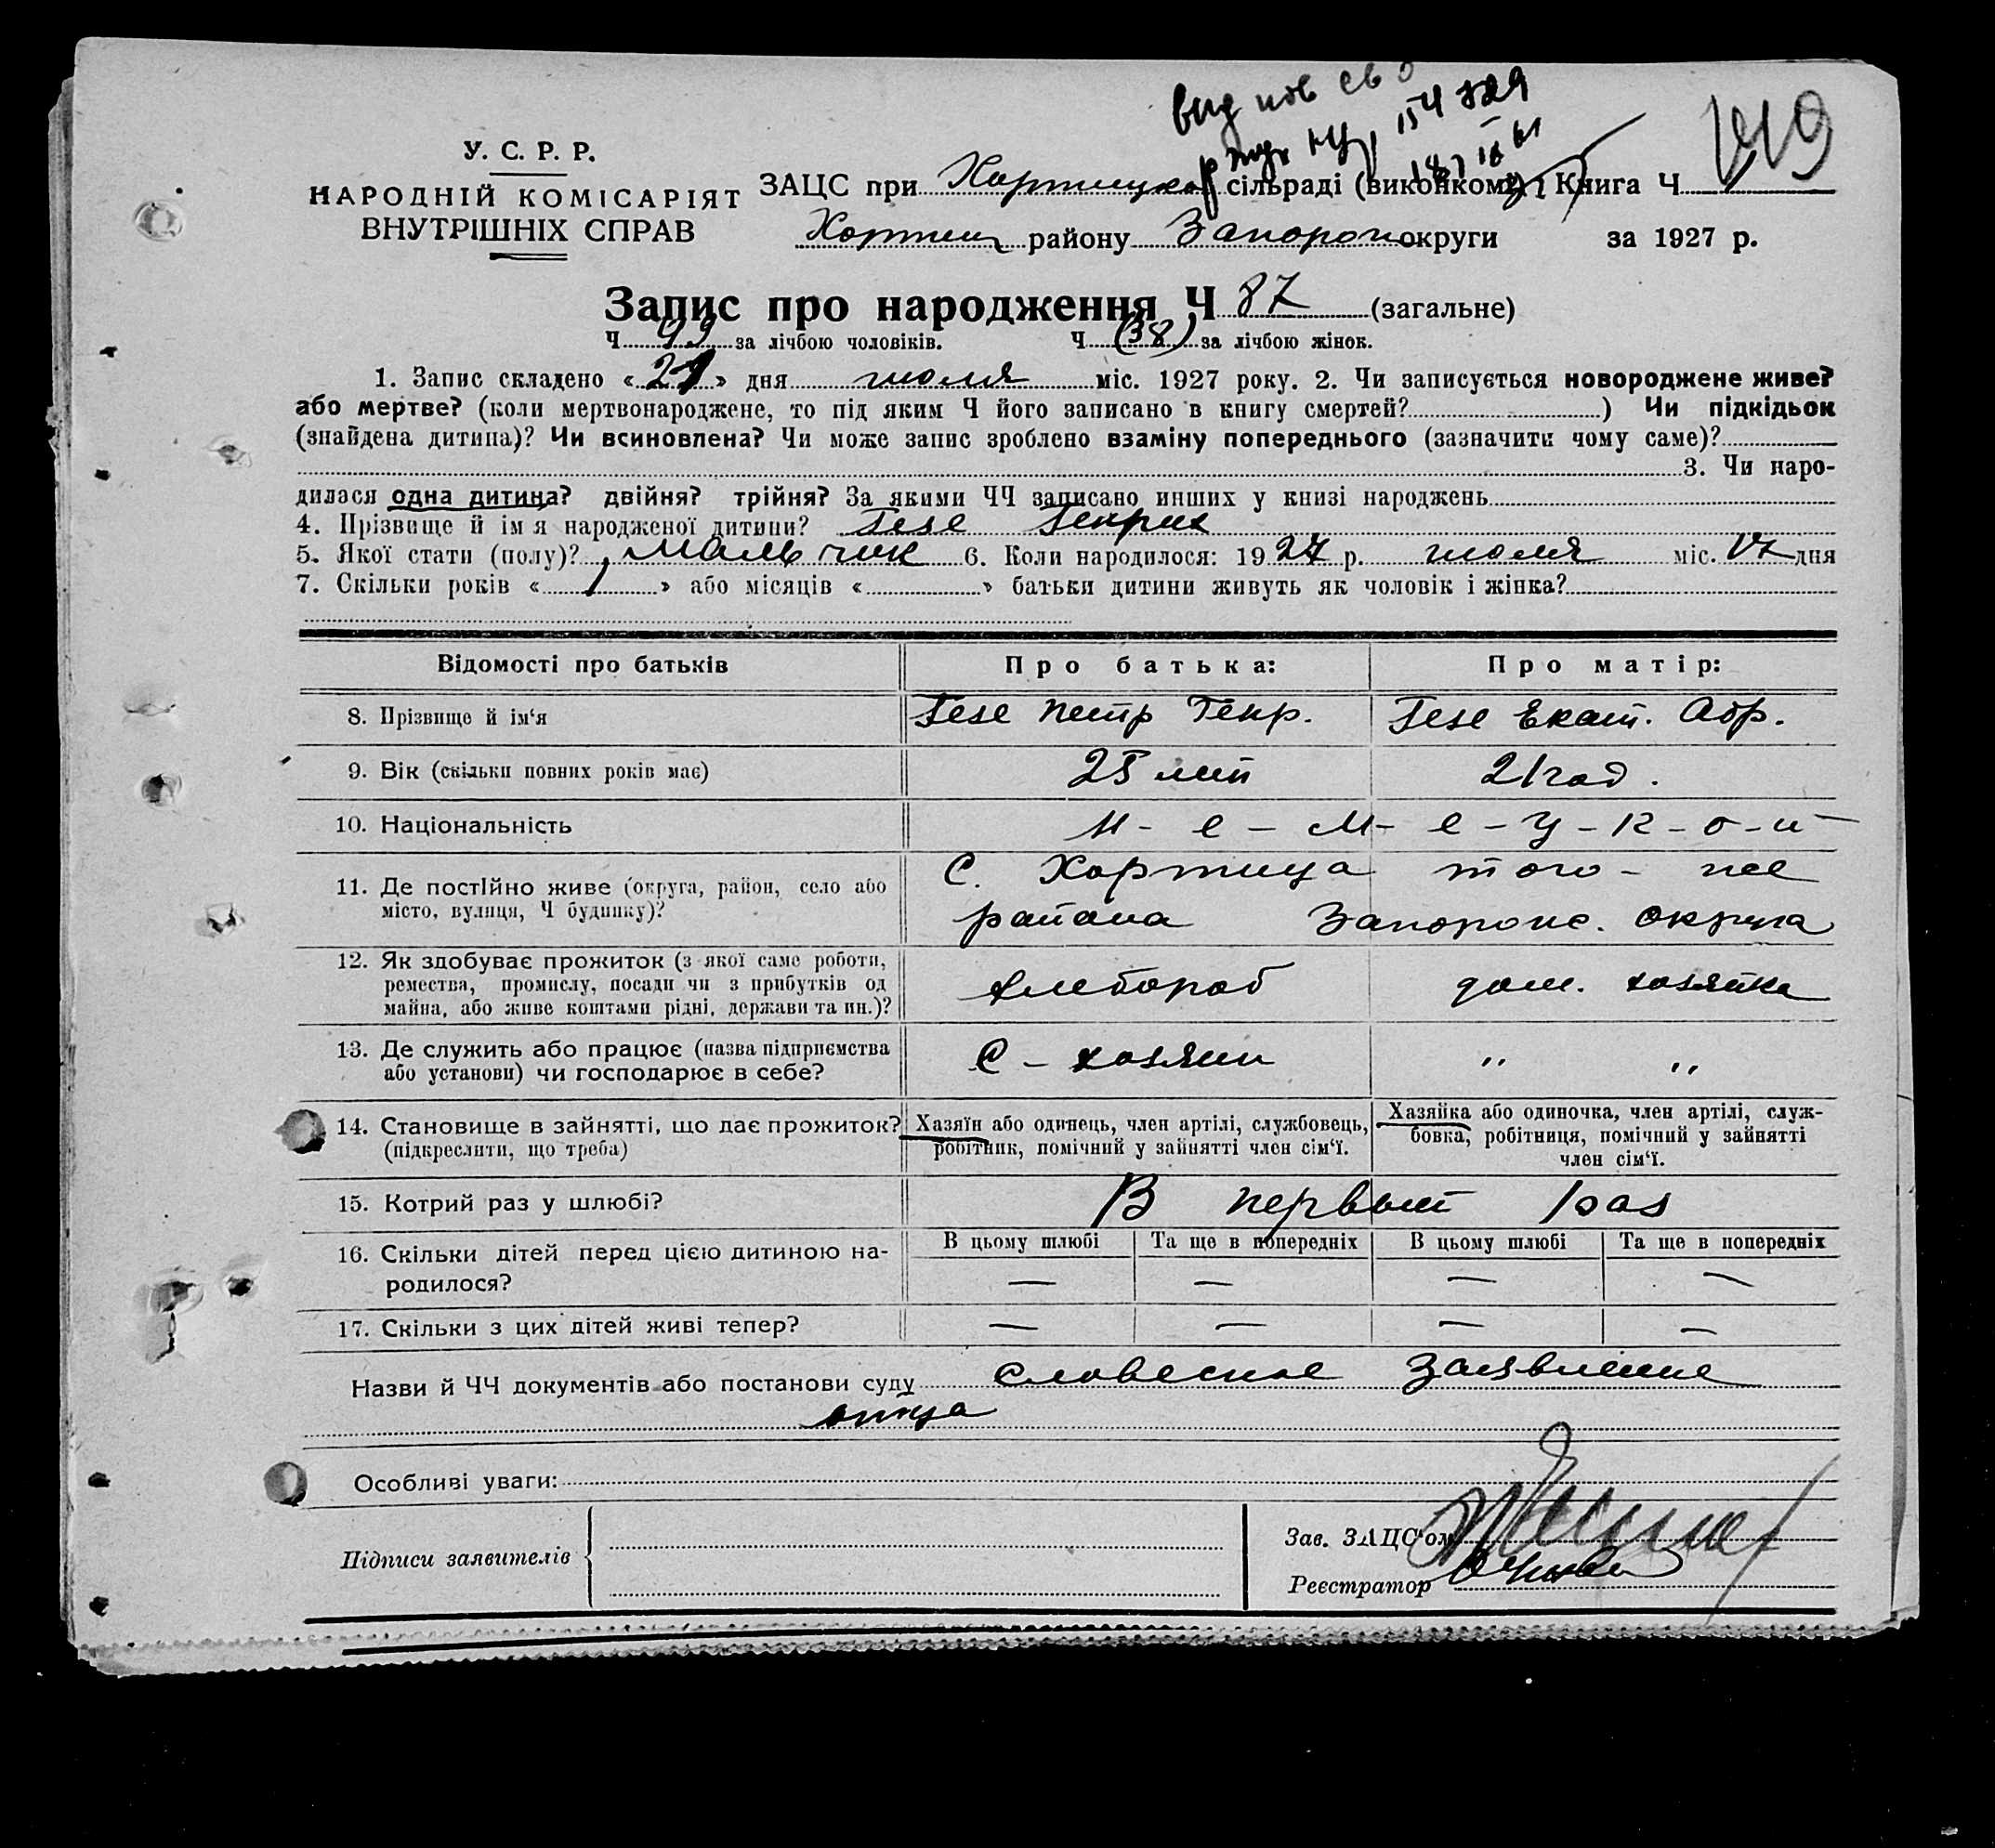 вид пов св
154729
У. С. Р. Р.
НАРОДНІЙ КОМІСАРІЯТ
ВНУТРІШНІХ СПРАВ
ЗАЦС при Хортицкой сільраді (виконкому). Книга Ч 119
Хортиц району Запорож округи за 1927 р.
Запис про народження Ч 87 (загальне)
Ч 49 за лічбою чоловіків. Ч (38) за лічбою жінок.
1. Запис складено « 21 » дня июля міс. 1927 року. 2. Чи записується новороджене живе?
або мертве? (коли мертвонароджене, то під яким Ч його записано в книгу смертей?) Чи підкідьок
(знайдена дитина)? Чи всиновлена? Чи може запис зроблено взаміну попереднього (зазначити чому саме)?
3. Чи наро-
дилася одна дитина? двійня? трійня? За якими ЧЧ записано инших у книзі народжень
4. Прізвище й ім'я народженої дитини? Гезе Генрих
5. Якої стати (полу)? Мальчик 6. Коли народилося: 1927 р. июля міс. 17 дня
7. Скільки років « 1 » або місяців « » батьки дитини живуть як чоловік і жінка?
Відомості про батьків Про батька: Про матір:
8. Прізвище й ім'я Гезе Петр Генр. Гезе Екат. Абр.
9. Вік (скільки повних років має) 25 лет 21 год.
10. Національність Н-е-м-е-ц-к-о-й
11. Де постійно живе (округа, район, село або С. Хортица того-же
місто, вулиця, Ч будинку)? района Запорож. округа
12. Як здобуває прожиток (з якої саме роботи,
ремества, промислу, посади чи з прибутків од Хлебороб дом. хозяйка
майна, або живе коштами рідні, держави та ин.)?
13. Де служить або працює (назва підприємства С-хозяин " "
або установи) чи господарює в себе?
14. Становище в зайнятті, що дає прожиток? Хазяїн або одинець, член артілі, службовець, Хазяйка або одиночка, член артілі, служ-
(підкреслити, що треба) робітник, помічний у зайнятті член сім'ї. бовка, робітниця, помічний у зайнятті
член сім'ї.
15. Котрий раз у шлюбі? В первый раз
16. Скільки дітей перед цією дитиною на- В цьому шлюбі Та ще в попередніх В цьому шлюбі Та ще в попередніх
родилося? — — — —
17. Скільки з цих дітей живі тепер? — — — —
Назви й ЧЧ документів або постанови суду словесное заявление
отца
Особливі уваги:
Підписи заявителів
Зав. ЗАЦС'ом
Реєстратор